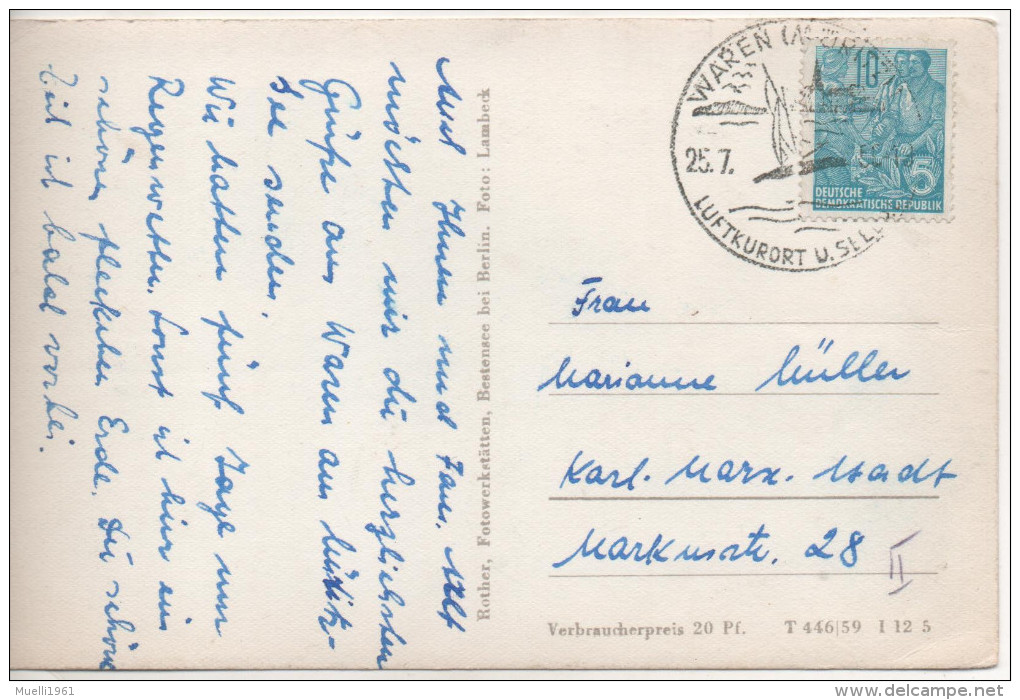 Auch Ihnen und Fam. Alf
möchten wir die herzlichsten
Grüße aus Waren am
See senden.
Wir hatten fünf Tage nur
Regenwetter. Sonst ist hier ein
schönes Fleckchen Erde. Die schöne
Zeit ist bald vorbei.
Rother, Fotowerkstätten, Bestensee bei Berlin. Foto: Lambeck
WAREN (MÜRITZ)
25.7.
LUFTKURORT U. SEE
10
5
DEUTSCHE
DEMOKRATISCHE REPUBLIK
Frau
Marianne Müller
Karl-Marx-Stadt
Markusstr. 28
II
Verbraucherpreis 20 Pf. T 446|59 I 12 5
Muelli1961
www.delcampe.net